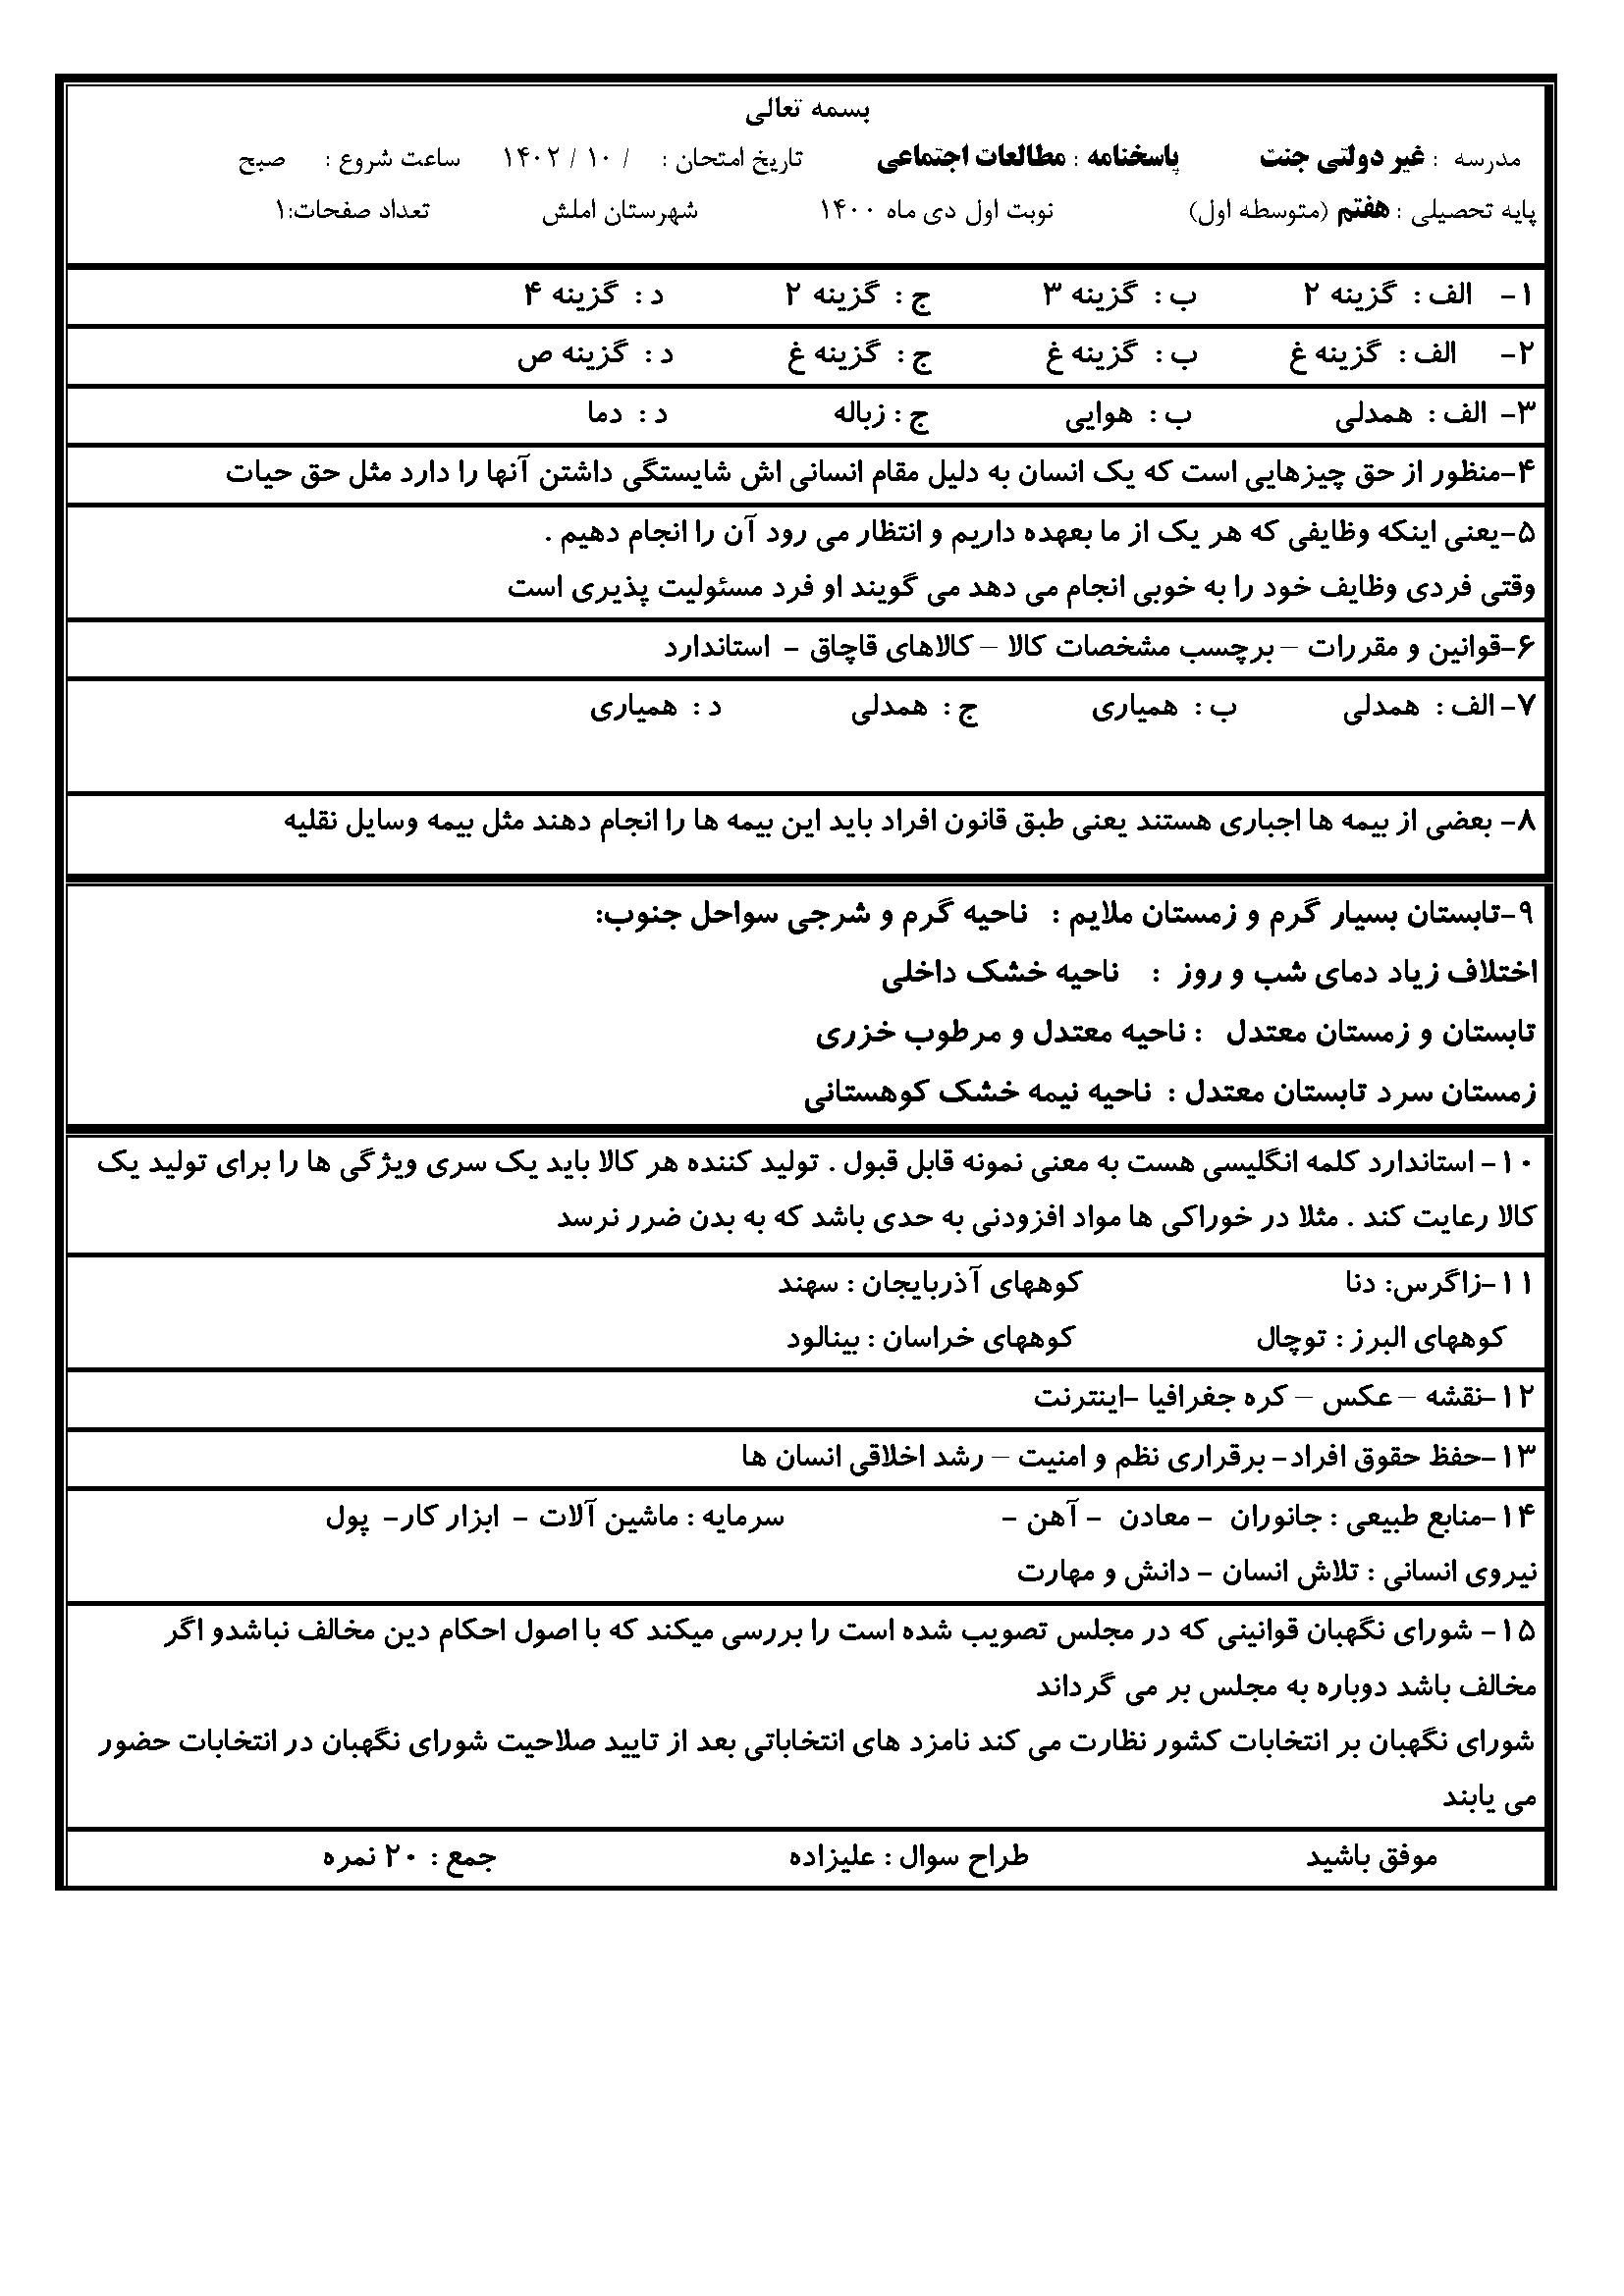 بسمه تعالی
مدرسه : غیر دولتی جنت پاسخنامه : مطالعات اجتماعی تاریخ امتحان : / ۱۰ / ۱۴۰۲ ساعت شروع : صبح
پایه تحصیلی : هفتم (متوسطه اول) نوبت اول دی ماه ۱۴۰۰ شهرستان املش تعداد صفحات:۱
۱- الف : گزینه ۲ ب : گزینه ۳ ج : گزینه ۲ د : گزینه ۴
۲- الف : گزینه غ ب : گزینه غ ج : گزینه غ د : گزینه ص
۳- الف : همدلی ب : هوایی ج : زباله د : دما
۴-منظور از حق چیزهایی است که یک انسان به دلیل مقام انسانی اش شایستگی داشتن آنها را دارد مثل حق حیات
۵-یعنی اینکه وظایفی که هر یک از ما بعهده داریم و انتظار می رود آن را انجام دهیم .
وقتی فردی وظایف خود را به خوبی انجام می دهد می گویند او فرد مسئولیت پذیری است
۶-قوانین و مقررات – برچسب مشخصات کالا – کالاهای قاچاق - استاندارد
۷- الف : همدلی ب : همیاری ج : همدلی د : همیاری
۸- بعضی از بیمه ها اجباری هستند یعنی طبق قانون افراد باید این بیمه ها را انجام دهند مثل بیمه وسایل نقلیه
۹-تابستان بسیار گرم و زمستان ملایم : ناحیه گرم و شرجی سواحل جنوب:
اختلاف زیاد دمای شب و روز : ناحیه خشک داخلی
تابستان و زمستان معتدل : ناحیه معتدل و مرطوب خزری
زمستان سرد تابستان معتدل : ناحیه نیمه خشک کوهستانی
۱۰- استاندارد کلمه انگلیسی هست به معنی نمونه قابل قبول . تولید کننده هر کالا باید یک سری ویژگی ها را برای تولید یک
کالا رعایت کند . مثلا در خوراکی ها مواد افزودنی به حدی باشد که به بدن ضرر نرسد
۱۱-زاگرس: دنا کوههای آذربایجان : سهند
کوههای البرز : توچال کوههای خراسان : بینالود
۱۲-نقشه – عکس – کره جغرافیا -اینترنت
۱۳-حفظ حقوق افراد- برقراری نظم و امنیت – رشد اخلاقی انسان ها
۱۴-منابع طبیعی : جانوران - معادن - آهن - سرمایه : ماشین آلات - ابزار کار- پول
نیروی انسانی : تلاش انسان - دانش و مهارت
۱۵- شورای نگهبان قوانینی که در مجلس تصویب شده است را بررسی میکند که با اصول احکام دین مخالف نباشدو اگر
مخالف باشد دوباره به مجلس بر می گرداند
شورای نگهبان بر انتخابات کشور نظارت می کند نامزد های انتخاباتی بعد از تایید صلاحیت شورای نگهبان در انتخابات حضور
می یابند
موفق باشید طراح سوال : علیزاده جمع : ۲۰ نمره